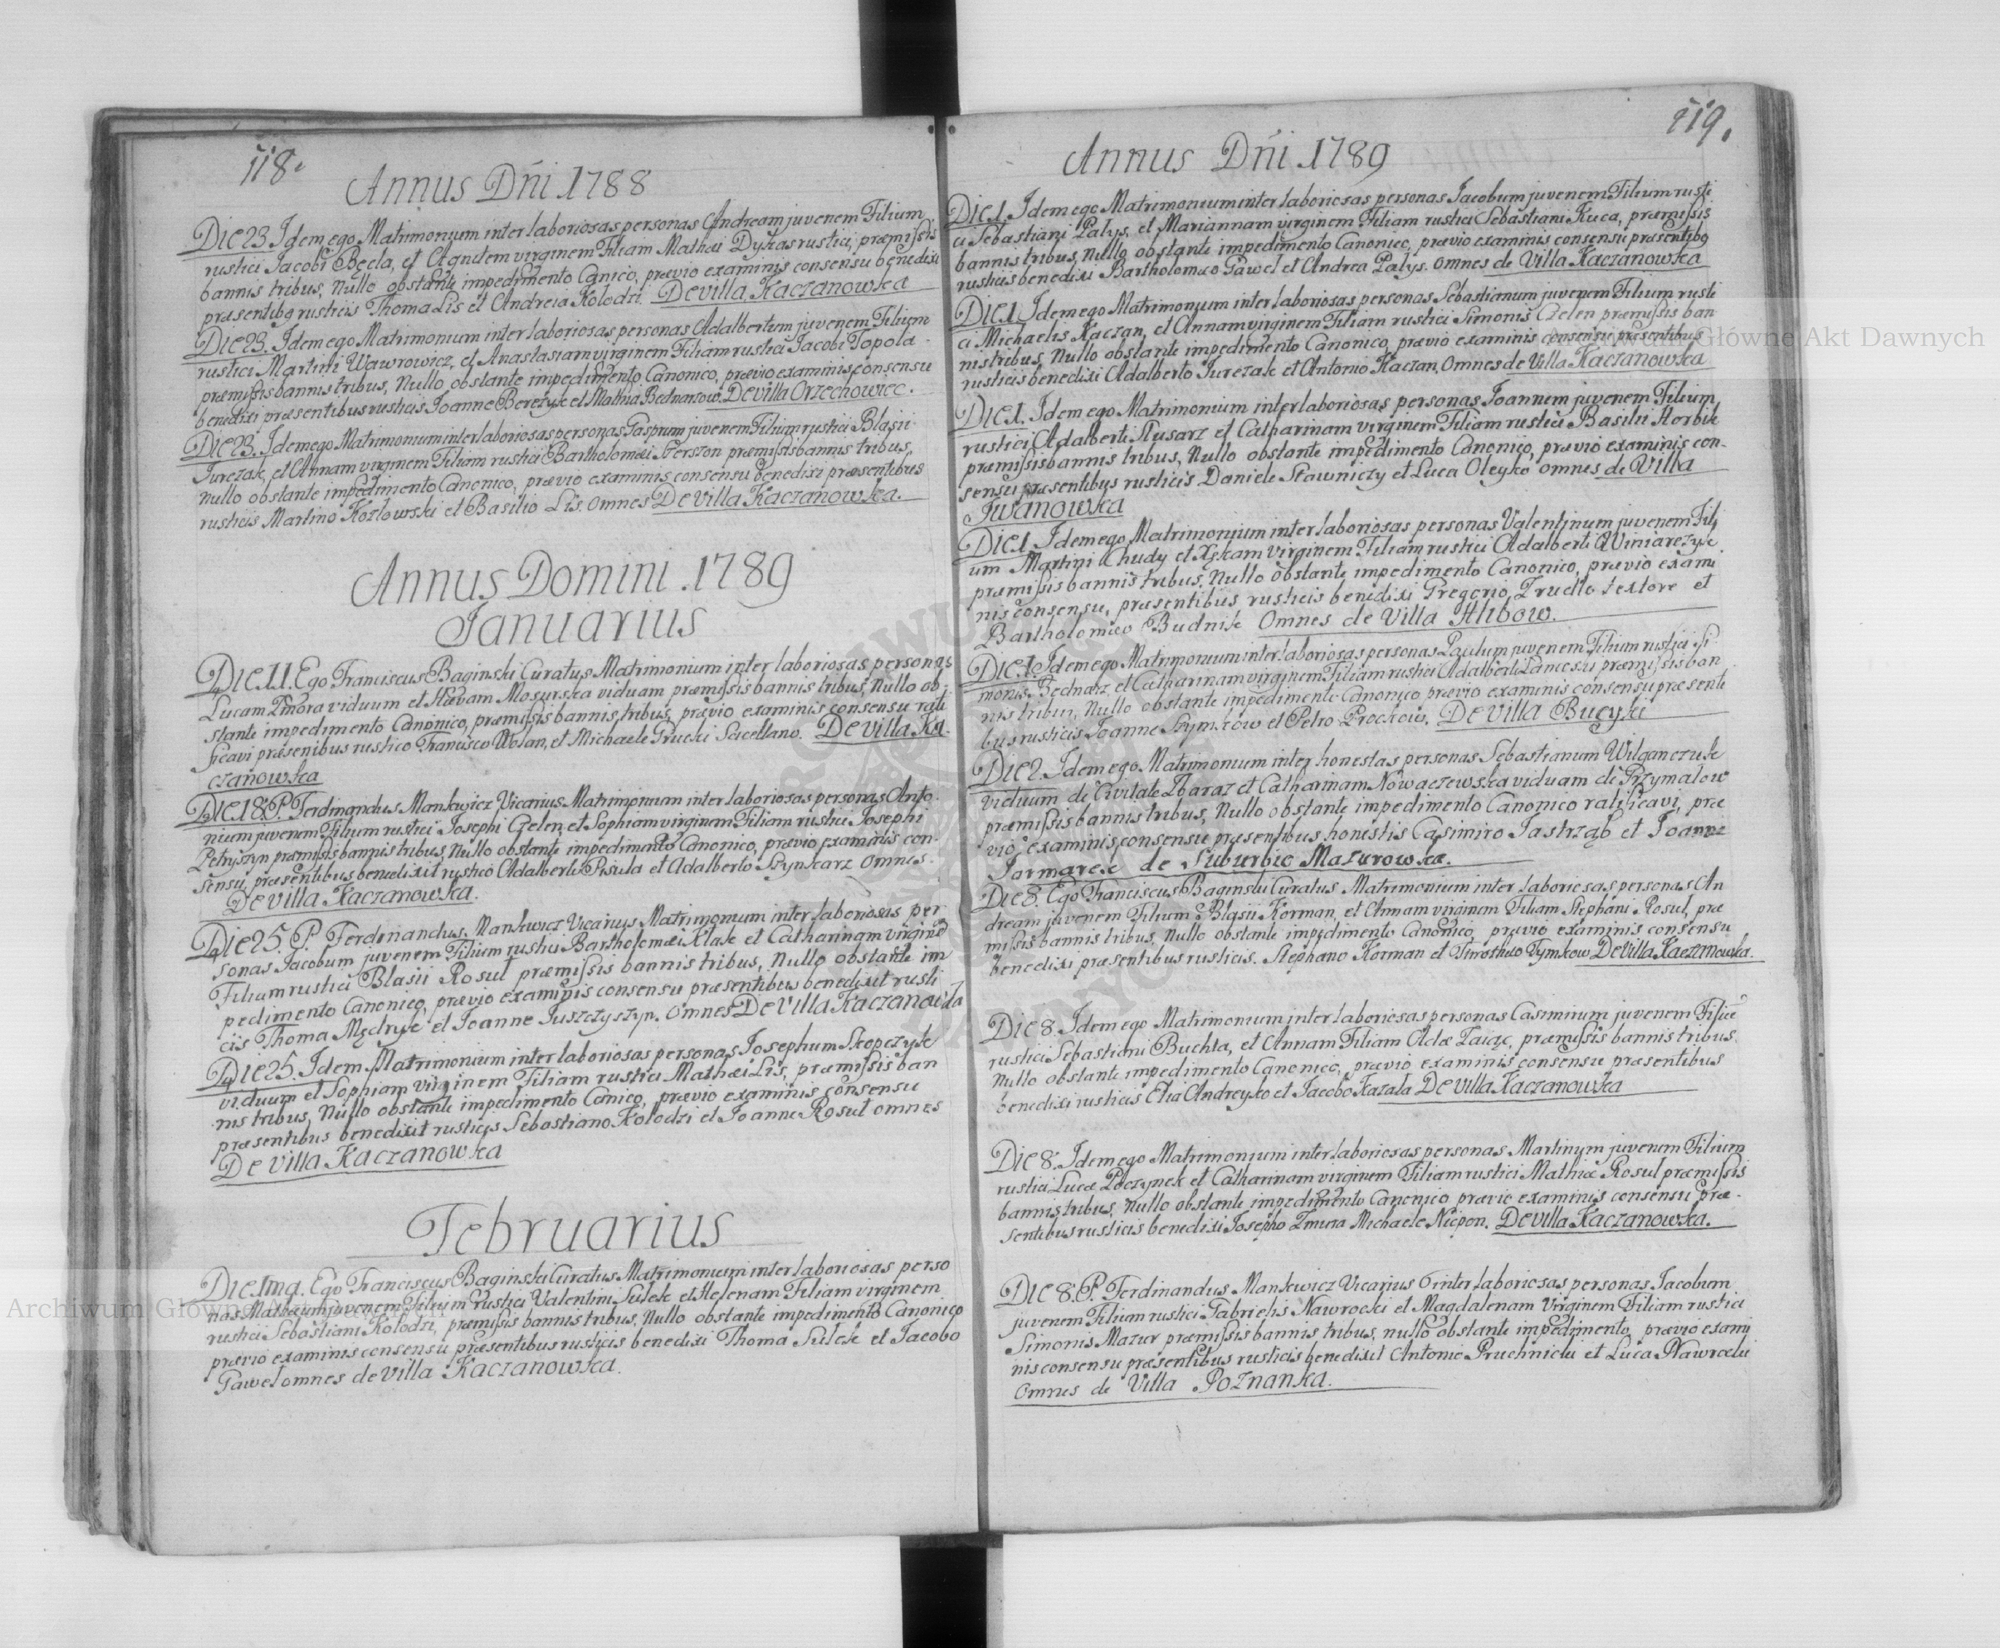 118.
Annus Dñi 1788
Die 23. Idem ego Matrimonium inter laboriosas personas Andream juvenem Filium
rustici Jacobi Becla, et Agnetem virginem Filiam Mathæi Dykas rustici, præmissis
bannis tribus, Nullo obstante impedimento Canico, prævio examinis consensu benedixi
præsentibq rusticis Thoma Lis et Andreia Kolodzi. De villa Kaczanowka
Die 23. Idem ego Matrimonium inter laboriosas personas Adalbertum juvenem Filium
rustici Martini Wawrowicz, et Anastasiam virginem Filiam rustici Jacobi Topola
præmissis bannis tribus, Nullo obstante impedimento Canonico, prævio examinis consensu
benedixi præsentibus rusticis Joanne Berezyk et Mathia Bednarzow. De villa Orzechowiec.
Die 23. Idem ego Matrimonium inter laboriosas personas Gasprum juvenem Filium rustici Blasii
Jurczak, et Annam virginem Filiam rustici Bartholomæi Gerszon præmissis bannis tribus,
Nullo obstante impedimento Canonico, prævio examinis consensu benedixi præsentibus
rusticis Martino Kozlowski et Basilio Lis. omnes De Villa Kaczanowka.
Annus Domini .1789
Januarius
Die 11. Ego Franciscus Baginski Curatus Matrimonium inter laboriosas personas
Lucam Zmora viduum et Hævam Mosurska viduam præmissis bannis tribus, Nullo ob
stante impedimento Canonico, præmissis bannis tribus, prævio examinis consensu rati
ficavi præsenibus rustico Francisco Wolan, et Michaele Grucki Sacellano. De villa Ka
czanowka
Die 18. P. Ferdinandus Mankwicz Vicarius Matrimonium inter laboriosas personas Anto
nium juvenem Filium rustici Josephi Czelen, et Sophiam virginem Filiam rustici Josephi
Petryszyn præmissis bannis tribus, Nullo obstante impedimento Canonico, prævio examinis con
sensu, præsentibus benedixit rustico Adalberto Pisula et Adalberto Szynkarz omnes
De villa Kaczanowka.
Die 25. P. Ferdinandus Mankwicz Vicarius Matrimonium inter laboriosas per
sonas Jacobum juvenem Filium rustici Bartholomæi Klak et Catharinam virginē
Filiam rustici Blasii Rosul præmissis bannis tribus, Nullo obstante im
pedimento Canonico, prævio examinis consensu præsentibus benedixit rusti
cis Thoma Mędryk et Joanne Juszczyszyn. omnes De villa Kaczanowka
Die 25. Idem Matrimonium inter laboriosas personas Josephum Skopczyk
viduum et Sophiam virginem Filiam rustici Mathæi Lis, præmissis ban
nis tribus, Nullo obstante impedimento Canico, prævio examinis consensu
præsentibus benedixit rusticis Sebastiano Kolodzi et Joanne Rosul omnes
De villa Kaczanowka
Februarius
Die 1ma. Ego Franciscus Baginski Curatus Matrimonium inter laboriosas perso
nas Mathæum juvenem Filium rustici Valentini Sulek et Helenam Filiam virginem
rustici Sebastiani Kolodzi, præmissis bannis tribus, Nullo obstante impedimento Canonico
prævio examinis consensu præsentibus rusticis benedixi Thoma Sulek et Jacobo
Gawel omnes de villa Kaczanowka.
119.
Annus Dñi .1789
Die 1. Idem ego Matrimonium inter laboriosas personas Jacobum juvenem Filium rusti
ci Sebastiani Palys, et Mariannam virginem Filiam rustici Sebastiani Kuca, præmissis
bannis tribus, Nullo obstante impedimento Canonico, prævio examinis consensu præsentibq
rusticis benedixi Bartholomæo Gawel et Andrea Palys. omnes de Villa Kaczanowka
Die 1. Idem ego Matrimonium inter laboriosas personas Sebastianum juvenem Filium rusti
ci Michaelis Kaczan, et Annam virginem Filiam rustici Simonis Czelen præmissis ban
nis tribus, Nullo obstante impedimento Canonico, prævio examinis consensu præsentibus
rusticis benedixi Adalberto Jurczak et Antonio Kaczan, Omnes de Villa Kaczanowka
Die 1. Idem ego Matrimonium inter laboriosas personas Joannem juvenem Filium
rustici Adalberti Slusarz et Catharinam virginem Filiam rustici Basilii Horbik
præmissis bannis tribus, Nullo obstante impedimento Canonico, prævio examinis con-
sensu præsentibus rusticis Daniele Stawniczy et Luca Oleyko omnes de Villa
Iwanowka
Die 1. Idem ego Matrimonium inter laboriosas personas Valentinum juvenem Fili
um Martini Chudy et virginem Filiam rustici Adalberti Winiarczyk
præmissis bannis tribus, Nullo obstante impedimento Canonico, prævio exami
nis consensu, præsentibus rusticis benedixi Gregorio Prudlo textore et
Bartholomæo Budnik Omnes de Villa Hlibow.
Die 1. Idem ego Matrimonium inter laboriosas personas Paulum juvenem Filium rustici Si
monis Bednarz, et Catharinam virginem Filiam rustici Adalberti præmissis ban
nis tribus, Nullo obstante impedimento Canonico prævio examinis consensu præsenti
bus rusticis Joanne Hymkow et Petro Prockow. De Villa Bucyki
Die 2. Idem ego Matrimonium inter honestas personas Sebastianum Wilganczuk
viduum de Civitate Zbaraz et Catharinam Nowaczewska viduam de Grzymalow
præmissis bannis tribus, Nullo obstante impedimento Canonico ratificavi, præ
vio examinis consensu præsentibus honestis Casimiro Jastrząb et Joanne
Jarmarek de Suburbio Mazurowka.
Die 8. Ego Franciscus Baginski Curatus Matrimonium inter laboriosas personas An
dream juvenem Filium Blasii Korman, et Annam virginem Filiam Stephani Rosul, præ
missis bannis tribus, Nullo obstante impedimento Canonico, prævio examinis consensu
benedixi præsentibus rusticis. Stephano Korman et Timotheo Tymkow De Villa Kaczanowka.
Die 8. Idem ego Matrimonium inter laboriosas personas Casimirum juvenem Filiuē
rustici Sebastiani Buchta, et Annam Filiam Adæ Zaiąc, præmissis bannis tribus
Nullo obstante impedimento Canonico, prævio examinis consensu præsentibus
benedixi rusticis Elia Andreyko et Jacobo Kazala De Villa Kaczanowka
Die 8. Idem ego Matrimonium inter laboriosas personas Martinum juvenem Filium
rustici Lucæ Poczynek et Catharinam virginem Filiam rustici Mathiæ Rosul præmissis
bannis tribus, Nullo obstante impedimento Canonico prævio examinis consensu præ-
sentibus rusticis benedixi Josepho Zmura Michaele Niepon. De villa Kaczanowka.
Die 8. P. Ferdinandus Mankwicz Vicarius inter laboriosas personas Jacobum
juvenem Filium rustici Gabrielis Nawrocki et Magdalenam Virginem Filiam rustici
Simonis Mazur præmissis bannis tribus, nullo obstante impedimento, prævio exami
nis consensu præsentibus rusticis benedixit Antonio Pruchnicki et Luca Nawrocki
Omnes de Villa Poznanka.
Główne Akt Dawnych
Archiwum Główne